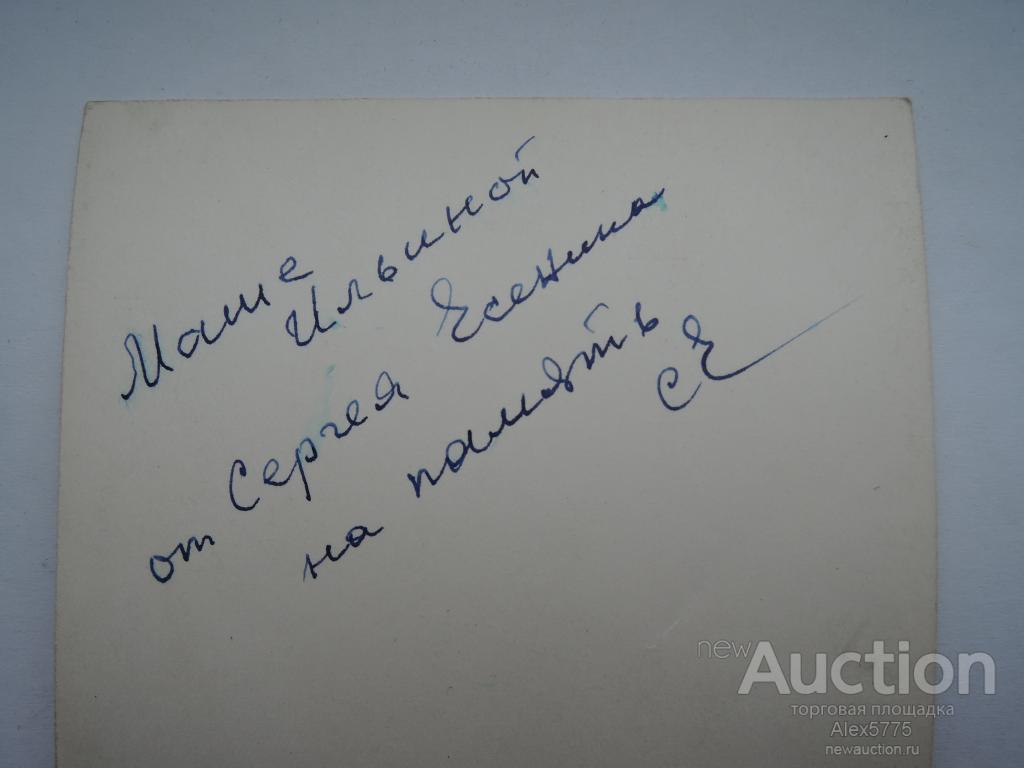 Маше
Ильиной
от Сергея Есенина
на память
СЕ
newAuction
торговая площадка
Alex5775
newauction.ru